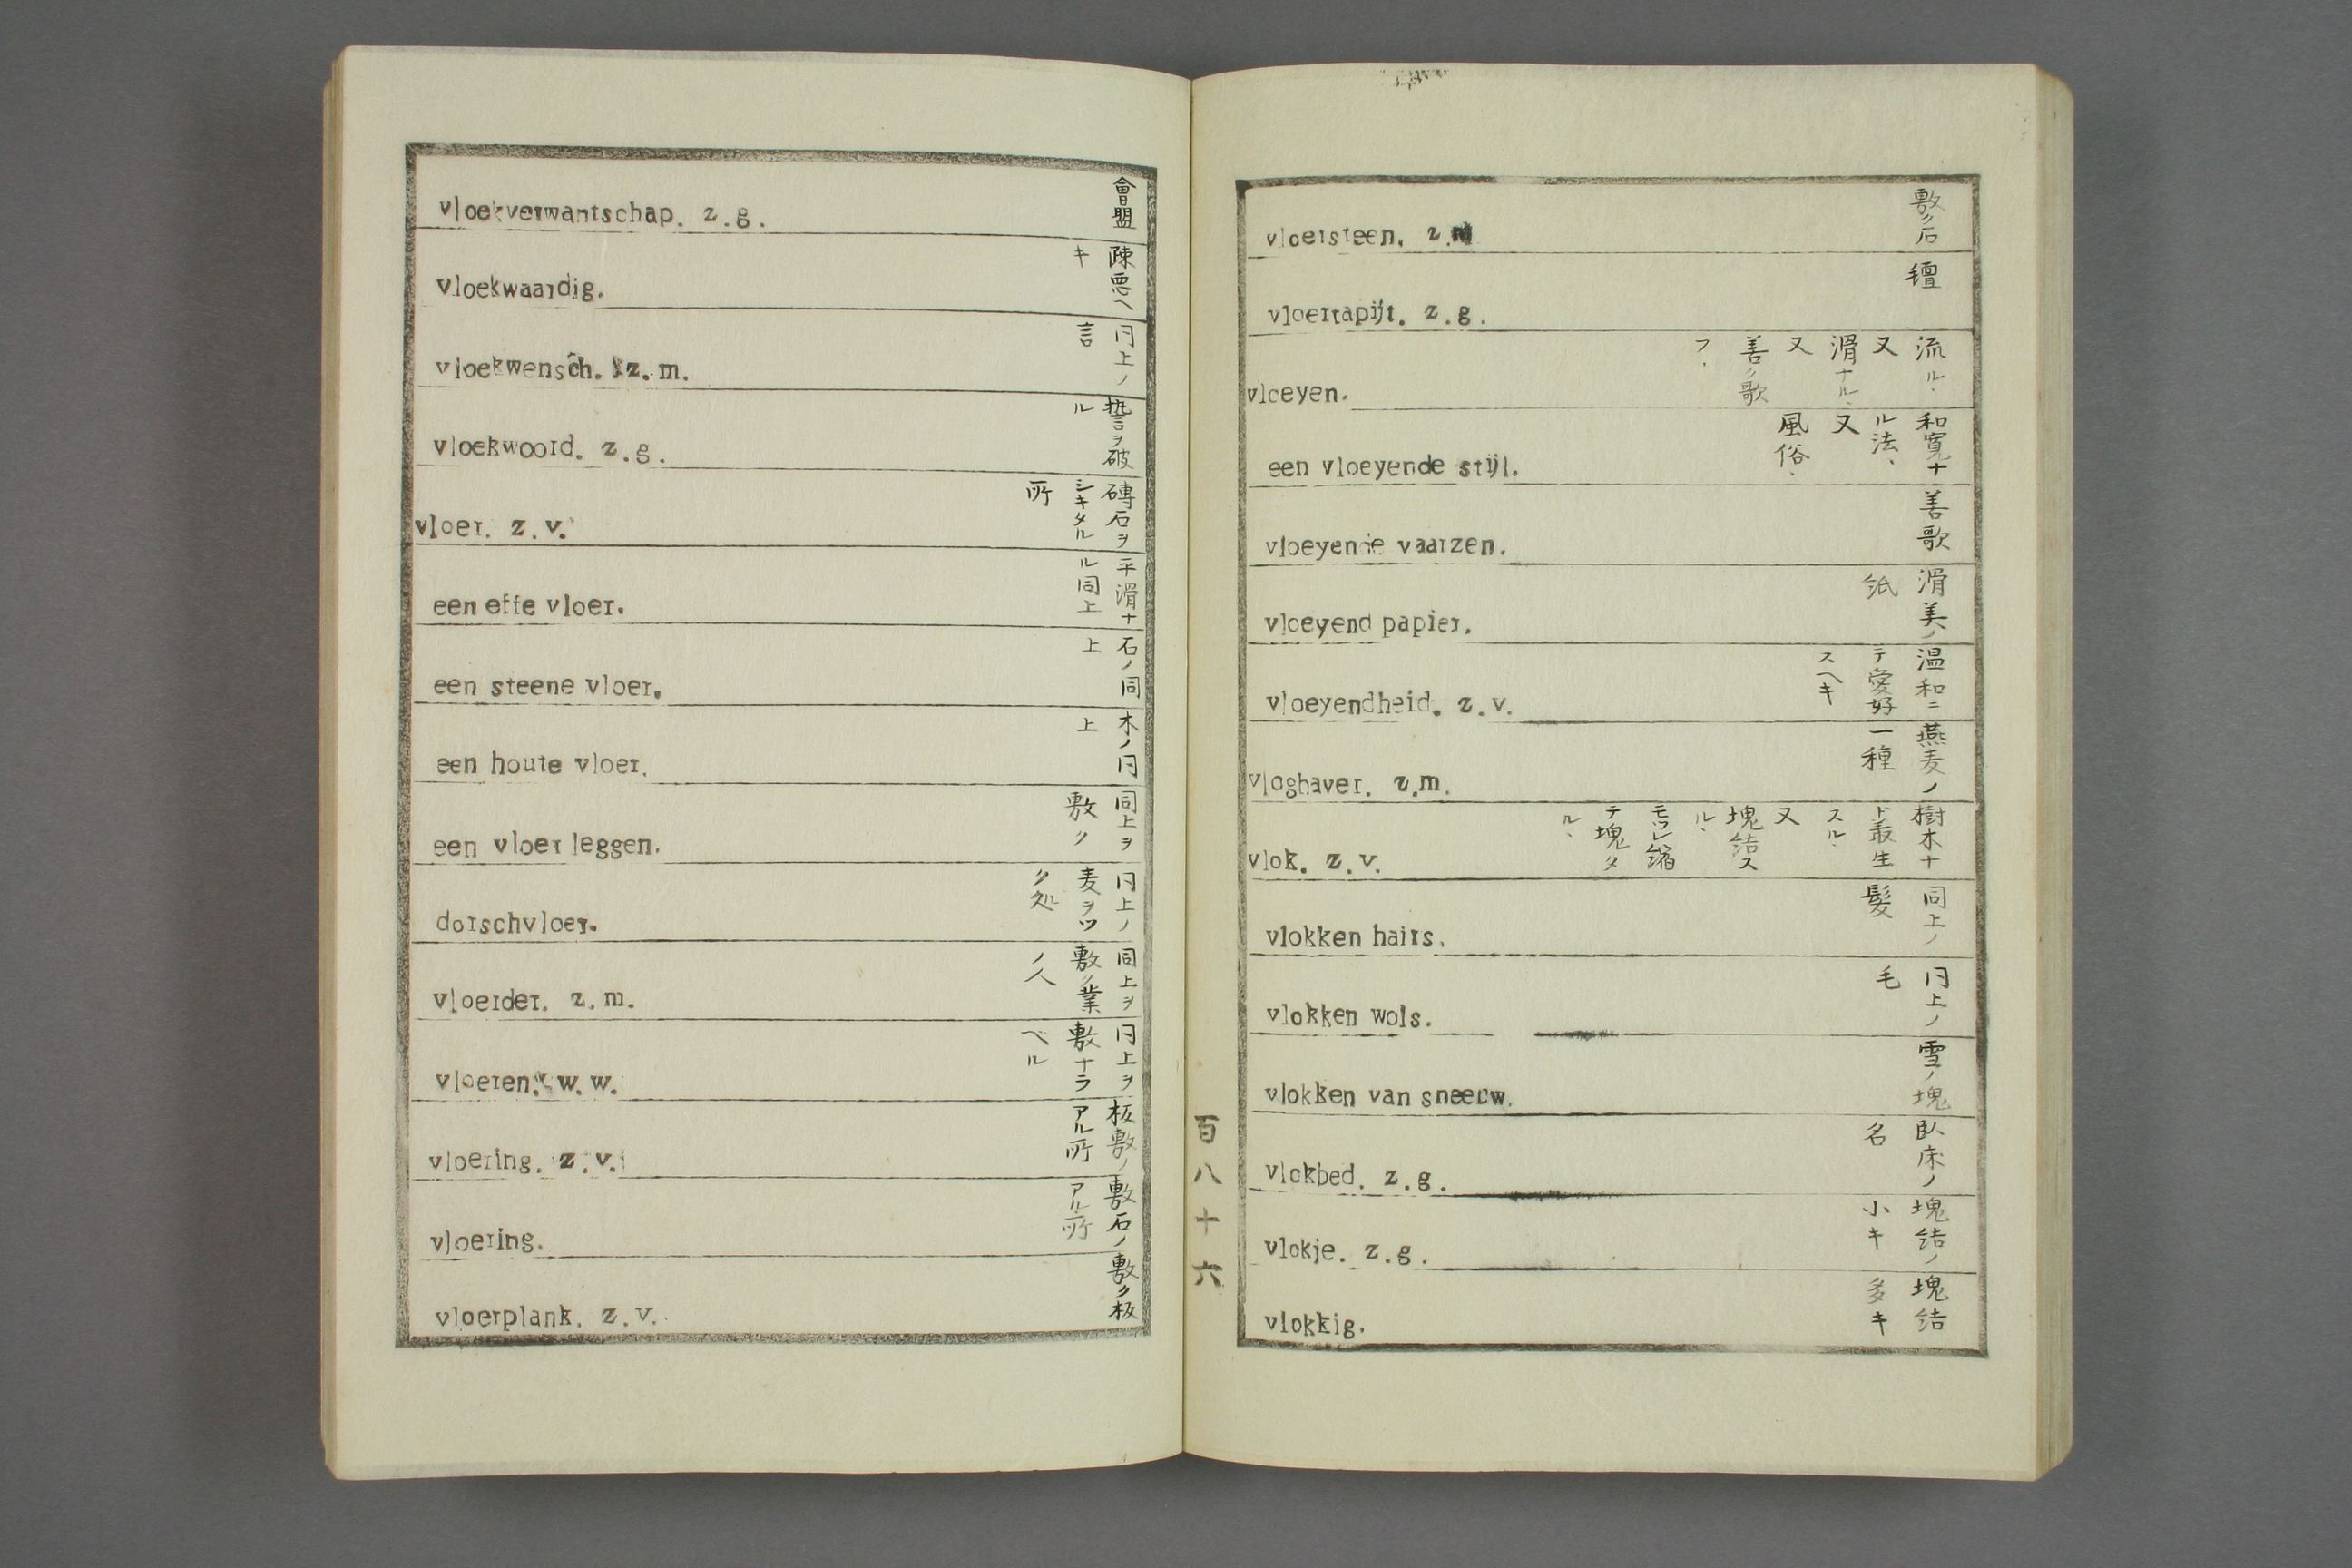 vloekverwantschap. z.g.
會盟
vloekwaardig.
疎惡ヘ
キ
vloekwensch. z.m.
冃上ノ
言
vloekwoord. z.g.
誓ヲ破
ル
vloer. z.v.
磚石ヲ
シキタル
所
een effe vloer.
平滑ナ
ル同上
een steene vloer.
石ノ同
上
een houte vloer.
木ノ冃
上
een vloer leggen.
同上ヲ
敷ク
dorschvloer.
冃上ノ
麦ヲツ
ク処
vloerder. z.m.
同上ヲ
敷ク業
ノ人
vloeren. w.w.
冃上ヲ
敷ナラ
ベル
vloering. z.v.
板敷ノ
アル所
vloering.
敷石ノ
アル所
vloerplank. z.v.
敷ク板
百八十六
vloersteen. z.m
敷ク石
vloertapijt. z.g.
氊
vloeyen.
流ル、
又
滑ナル、
又
善ク歌
フ、
een vloeyende stijl.
和寛ナ
ル法、
又
風俗、
vloeyende vaarzen.
善歌
vloeyend papier.
滑美ノ
紙
vloeyendheid. z.v.
温和ニ
テ愛好
スヘキ
vloghaver. z.m.
燕麦ノ
一種
vlok. z.v.
樹木ナ
ト叢生
スル、
又
塊結ス
ル、
モツレ縮
テ塊タ
ル、
vlokken hairs.
同上ノ
髪
vlokken wols.
冃上ノ
毛
vlokken van sneeuw.
雪ノ塊
vlokbed. z.g.
臥床ノ
名
vlokje. z.g.
塊結ノ
小キ
vlokkig.
塊結
多キ